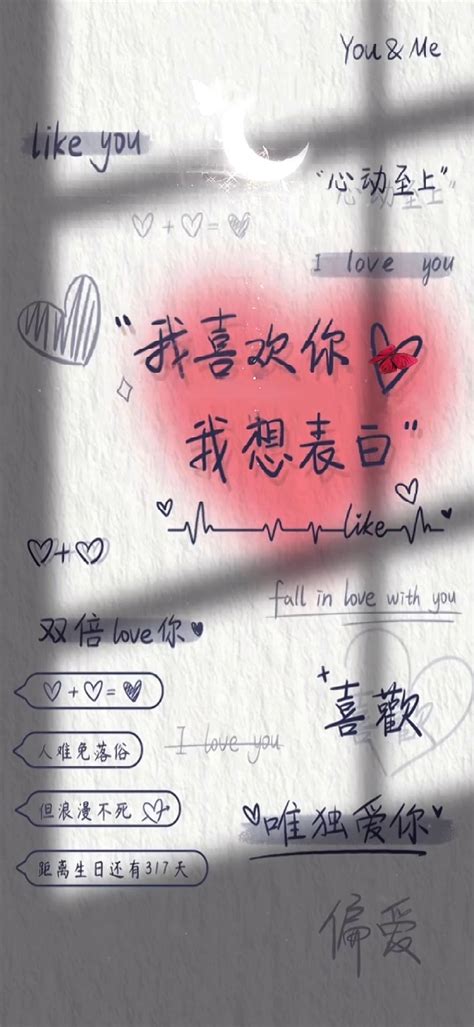 You & Me
like you
"心动至上"
♡+♡=♡
I love you
"我喜欢你
我想表白"
like
♡+♡
fall in love with you
双倍love你
喜歡
♡+♡=♡
I love you
人难免落俗
但浪漫不死
唯独爱你
距离生日还有317天
偏爱